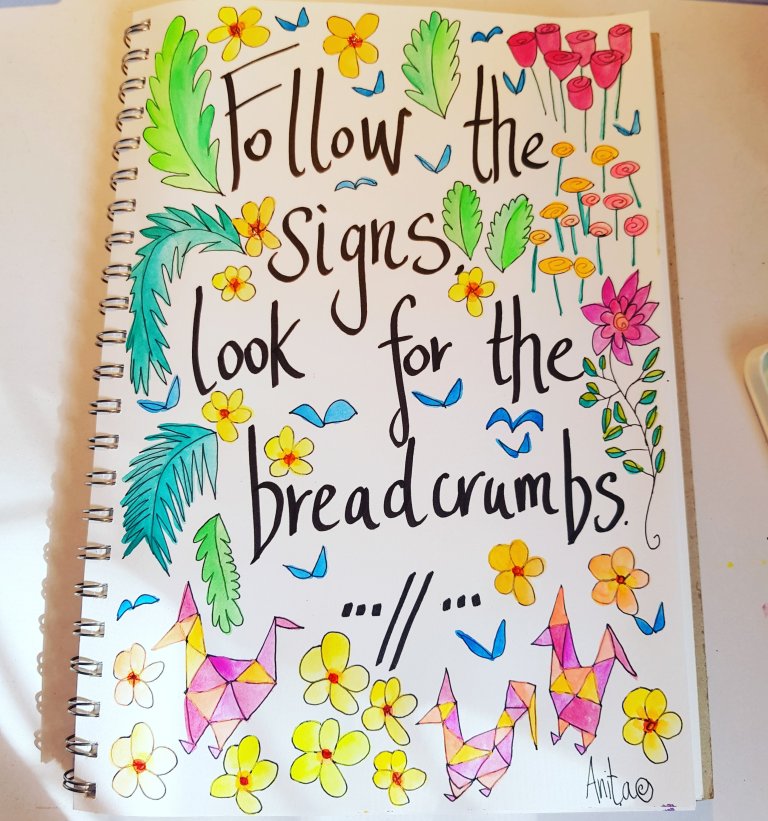 Follow the
signs.
look for the
breadcrumbs.
...//...
Anita©